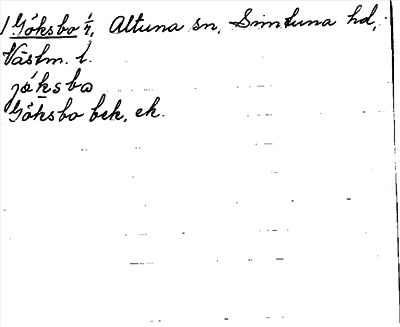 1 Göksbo 1/4, Altuna sn, Simtuna hd,
Västm. l.
jö́ksbo
Göksbo bek, ek.